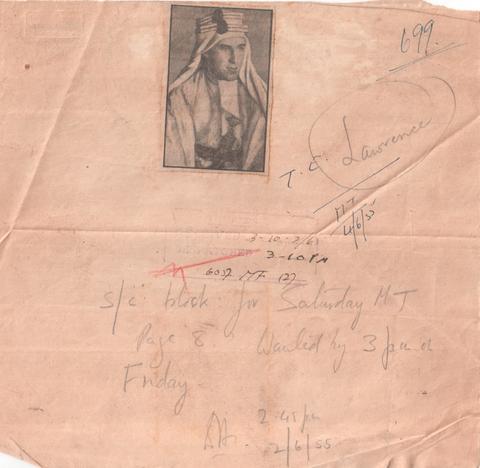 699.
T. E. Lawrence
MT
4/6/55
3-10. 2/6
3-10 PM
6037 MF (2)
S/c block for Saturday MT
Page 8. Wanted by 3 pm on
Friday.
2.45 pm
2/6/55